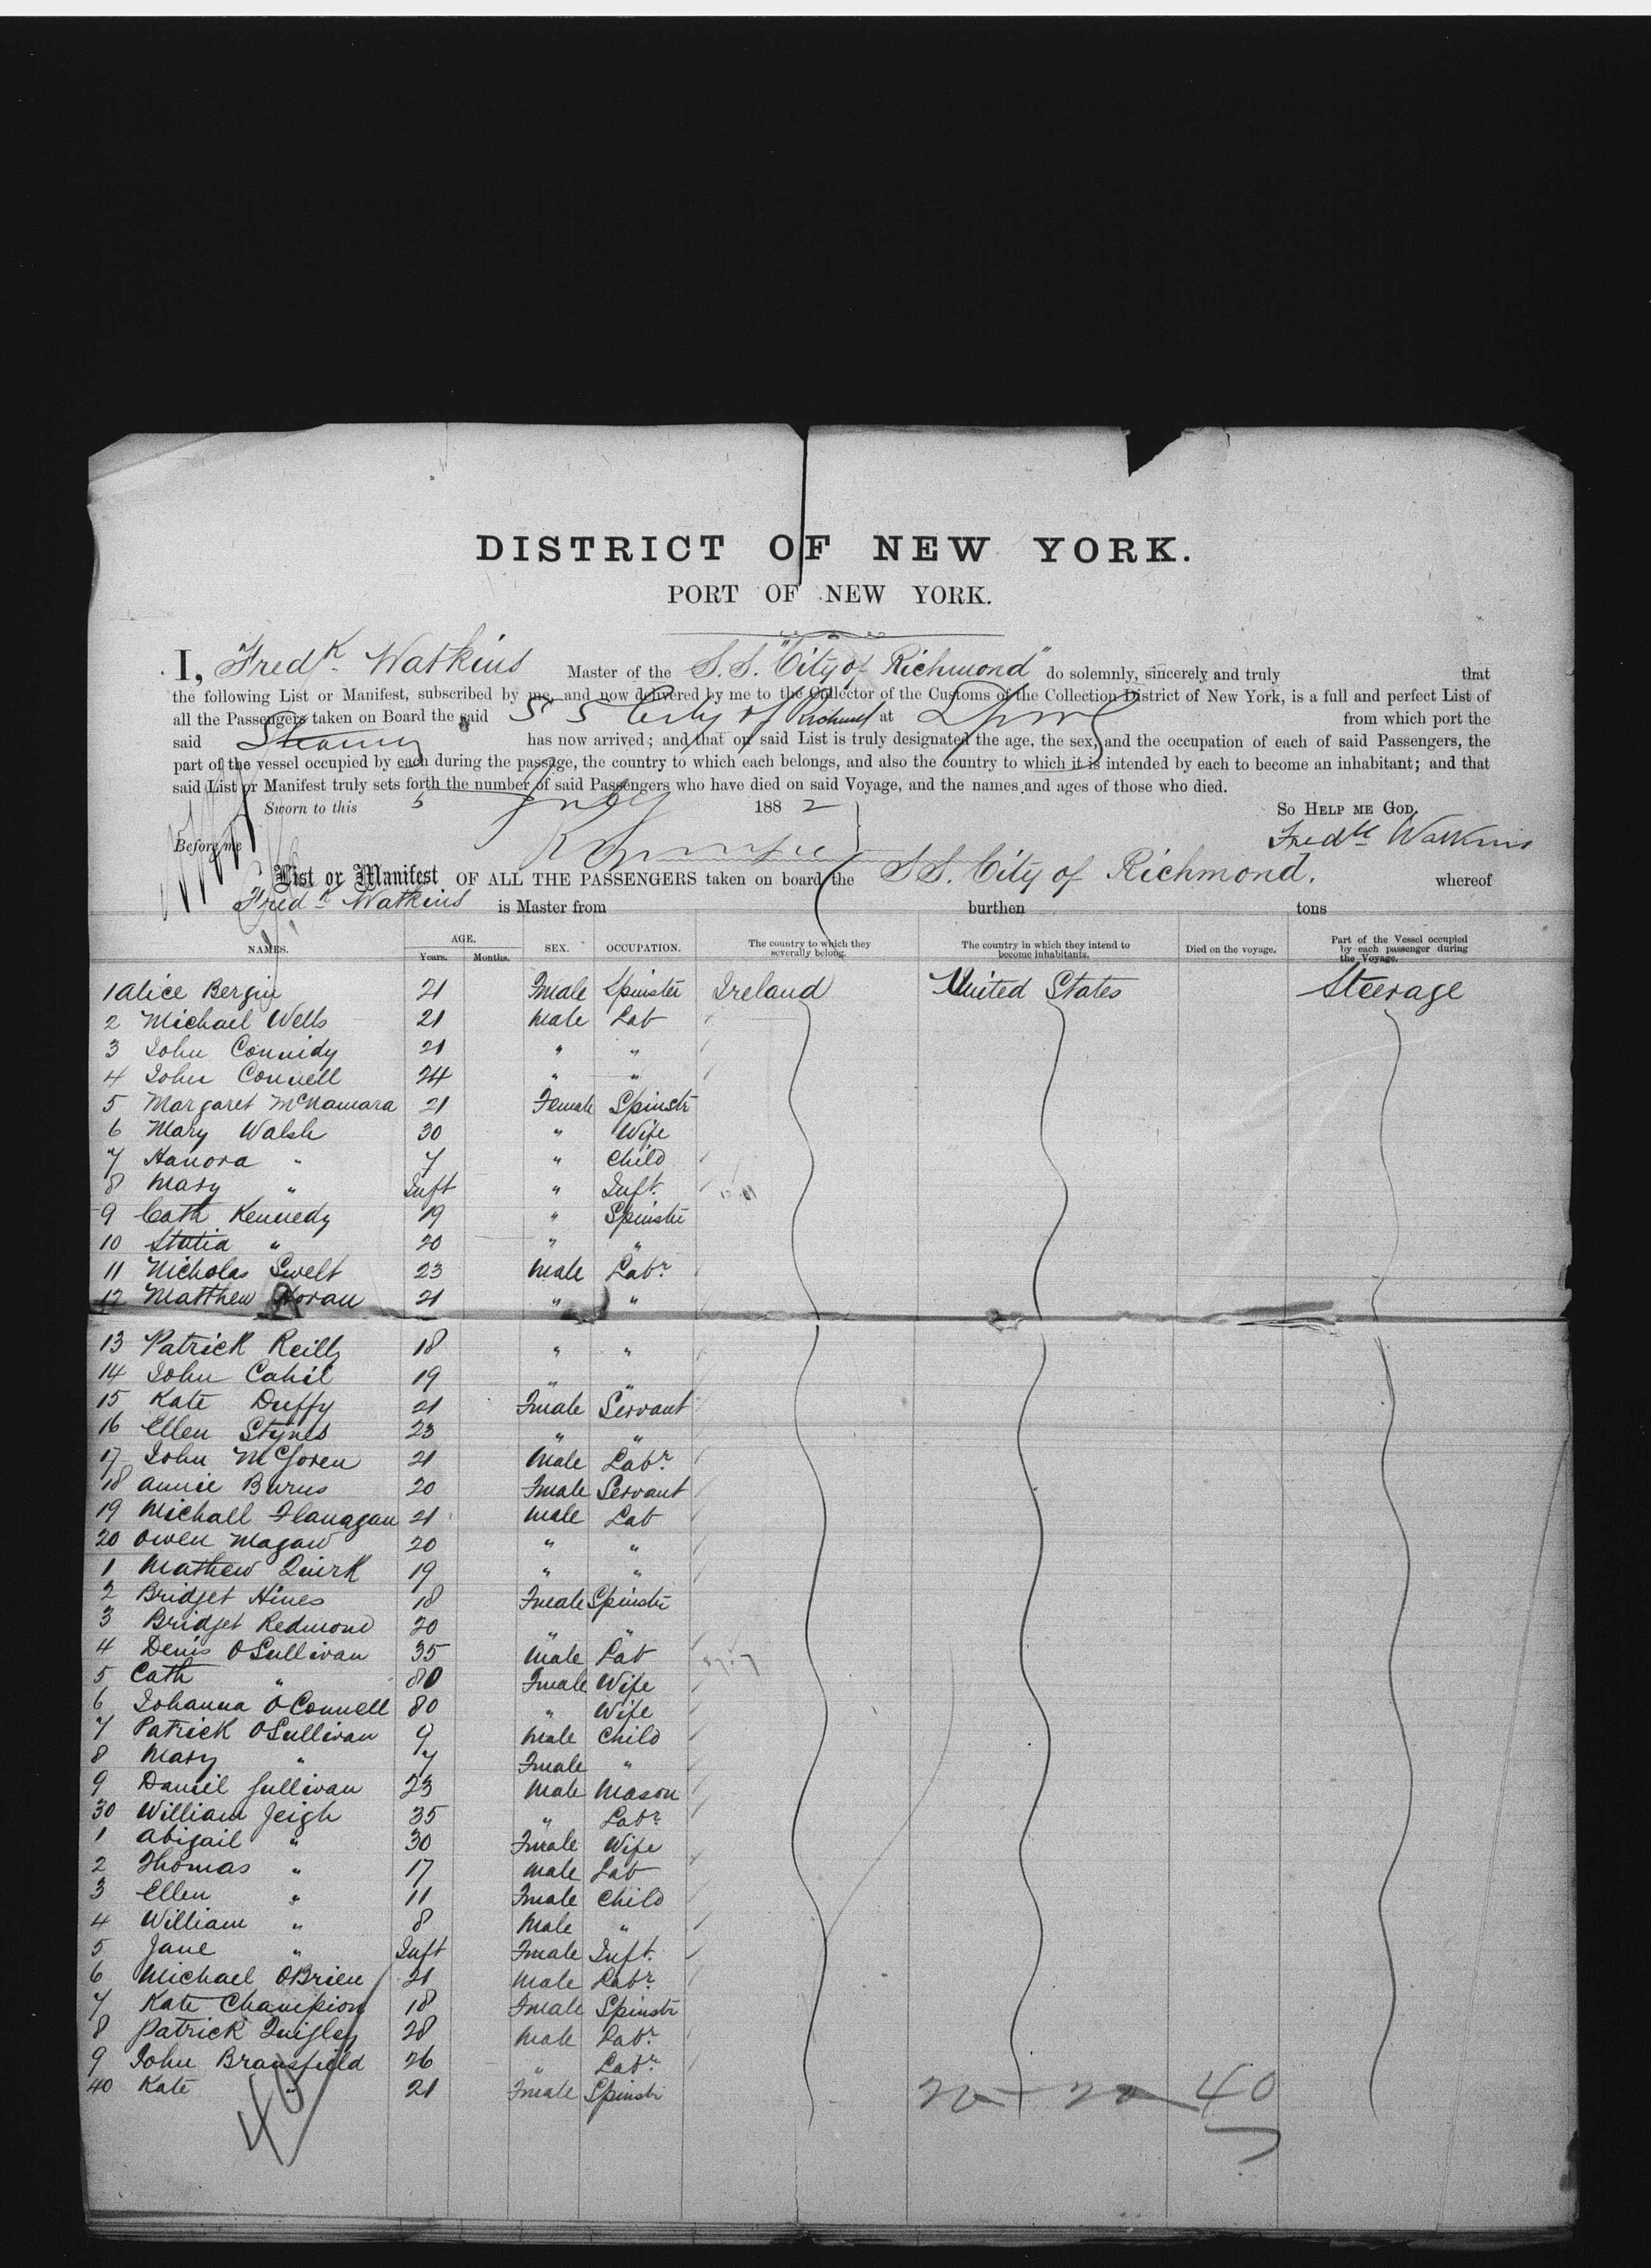 DISTRICT OF NEW YORK.
PORT OF NEW YORK.
I, Fredk Watkins Master of the S.S. "City of Richmond" do solemnly, sincerely and truly that
the following List or Manifest, subscribed by me, and now delivered by me to the Collector of the Customs of the Collection District of New York, is a full and perfect List of
all the Passengers taken on Board the said S S City of Richmd at Lpool from which port the
said Steamer has now arrived; and that on said List is truly designated the age, the sex, and the occupation of each of said Passengers, the
part of the vessel occupied by each during the passage, the country to which each belongs, and also the country to which it is intended by each to become an inhabitant; and that
said List or Manifest truly sets forth the number of said Passengers who have died on said Voyage, and the names and ages of those who died.
Sworn to this 5 July 1882 So Help me God.
Before me Fredk Watkins
List or Manifest OF ALL THE PASSENGERS taken on board the S S. City of Richmond. whereof
Fredk Watkins is Master from burthen tons
NAMES. AGE. Years. Months. SEX. OCCUPATION. The country to which they severally belong. The country in which they intend to become inhabitants. Died on the voyage. Part of the Vessel occupied by each passenger during the Voyage.
1 Alice Bergin 21 Fmale Spinster Ireland United States Steerage
2 Michael Wells 21 Male Lab
3 John Connidy 21 " "
4 John Connell 24 " "
5 Margaret McNamara 21 Female Spinstr
6 Mary Walsh 30 " Wife
7 Hanora " 7 " Child
8 Mary " Inft " Inft.
9 Cath Kennedy 19 " Spinstr
10 Statia " 20 " "
11 Nicholas Swelt 23 Male Labr
12 Matthew Horan 21 " "
13 Patrick Reilly 18 " "
14 John Cahil 19 " "
15 Kate Duffy 21 Fmale Servant
16 Ellen Stynes 23 " "
17 John McGoren 21 Male Labr
18 Annie Burns 20 Fmale Servant
19 Michall Flanagan 21 Male Lab
20 Owen Magaw 20 " "
1 Mathew Quirk 19 " "
2 Bridget Hines 18 Fmale Spinstr
3 Bridget Redmond 20 " "
4 Denis OSullivan 35 Male Lab
5 Cath " 80 Fmale Wife
6 Johanna OConnell 80 " Wife
7 Patrick OSullivan 9 Male Child
8 Mary " 7 Fmale "
9 Daniel Sullivan 23 Male Mason
30 William Jeigh 35 " Labr
1 Abigail " 30 Fmale Wife
2 Thomas " 17 Male Lab
3 Ellen " 11 Fmale Child
4 William " 8 Male "
5 Jane " Inft Fmale Inft.
6 Michael OBrien 21 Male Labr
7 Kate Champion 18 Fmale Spinstr
8 Patrick Quigley 28 Male Labr
9 John Bransfield 26 " Labr
40 Kate " 21 Fmale Spinstr
20 20 40
40